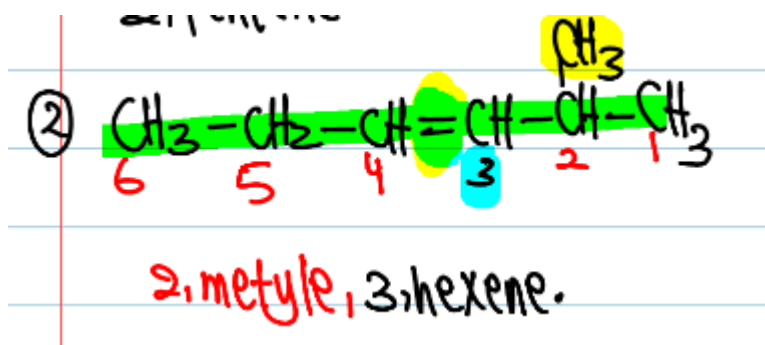 CH3
② CH3-CH2-CH=CH-CH-CH3
6 5 4 3 2 1
2,metyle, 3,hexene.